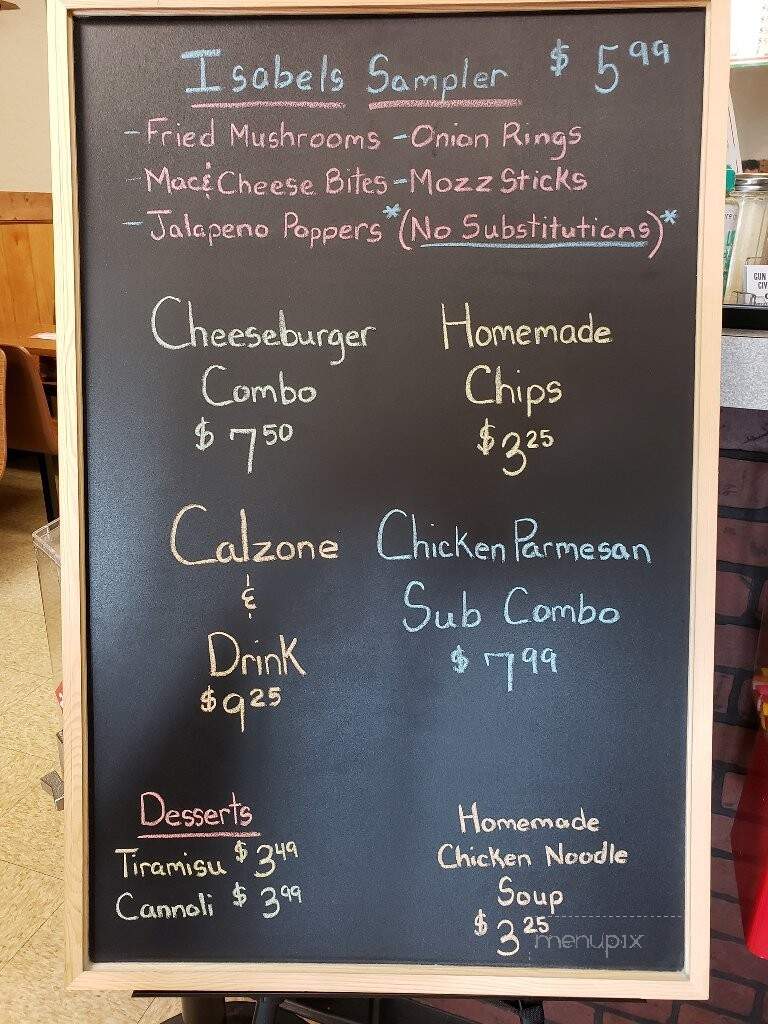 Isabels Sampler $5.99
- Fried Mushrooms - Onion Rings
- Mac & Cheese Bites - Mozz Sticks
- Jalapeno Poppers *(No Substitutions)*
Cheeseburger
Combo
$7.50
Homemade
Chips
$3.25
Calzone
&
Drink
$9.25
Chicken Parmesan
Sub Combo
$7.99
Desserts
Tiramisu $3.49
Cannoli $3.99
Homemade
Chicken Noodle
Soup
$3.25
menupix